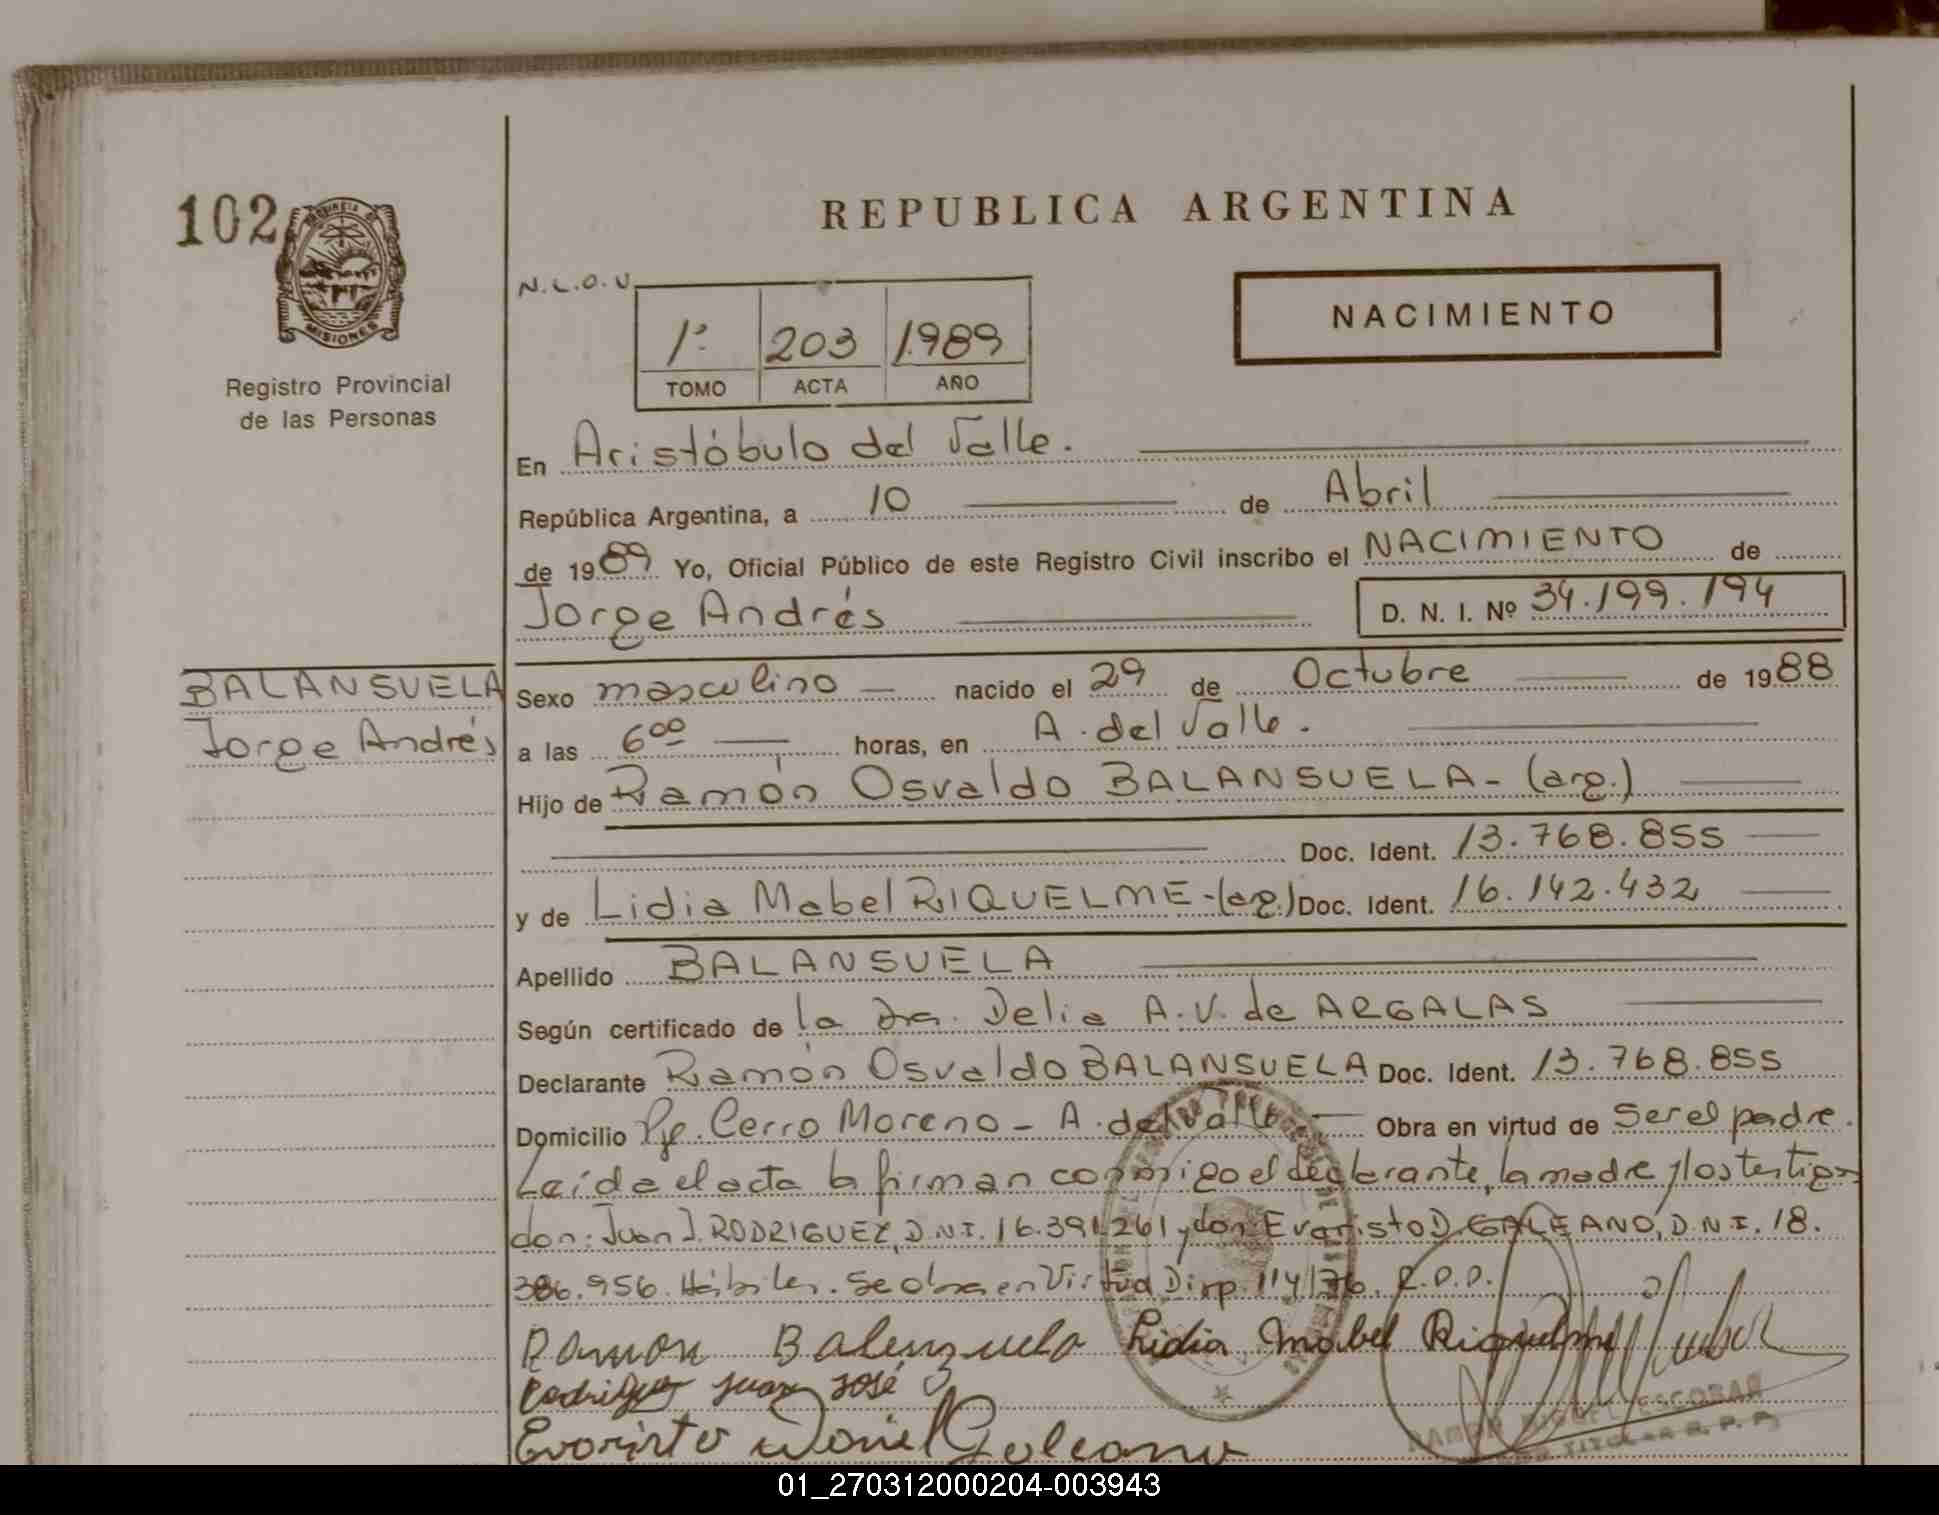 102
PROVINCIA DE
MISIONES
Registro Provincial
de las Personas
REPUBLICA ARGENTINA
N.L.O.U
1º 203 1989
TOMO ACTA AÑO
NACIMIENTO
En Aristóbulo del Valle.
República Argentina, a 10 de Abril
de 1989 Yo, Oficial Público de este Registro Civil inscribo el NACIMIENTO de
Jorge Andrés D. N. I. Nº 34.199.194
BALANSUELA
Jorge Andrés
Sexo masculino nacido el 29 de Octubre de 1988
a las 6⁰⁰ horas, en A. del Valle.
Hijo de Ramón Osvaldo BALANSUELA - (arg.)
Doc. Ident. 13.768.855
y de Lidia Mabel RIQUELME - (arg.) Doc. Ident. 16.142.432
Apellido BALANSUELA
Según certificado de la Dra. Delia A.V. de ARGALAS
Declarante Ramón Osvaldo BALANSUELA Doc. Ident. 13.768.855
Domicilio Pje. Cerro Moreno - A. del Valle Obra en virtud de ser el padre.
Leída el acta la firman conmigo el declarante, la madre y los testigos
don: Juan J. RODRIGUEZ, D.N.I. 16.391.261 y don Evaristo D. GALEANO, D.N.I. 18.
386.956. Hábiles. Se obra en Virtud Disp. 114/76. R.P.P.
Ramon Balenzuela Lidia Mabel Riquelme
Rodriguez Juan José
Evaristo Daniel Galeano
RAMON MIGUEL ESCOBAR
TITULAR R. P. P.
01_270312000204-003943